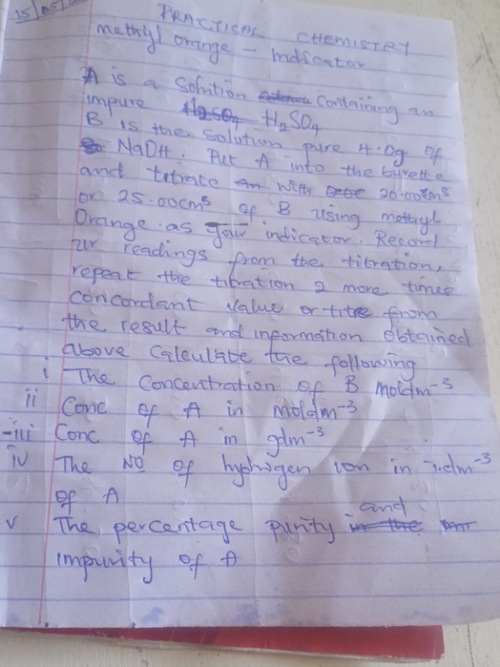 PRACTICAL CHEMISTRY
methyl orange - Indicator
A is a Solution containing an
impure H2SO4 H2SO4
B is the solution pure 4.0g of
NaOH. Put A into the burette
and titrate with 20.00cm3
or 25.00cm3 of B using methyl
Orange as your indicator. Record
ur readings from the titration,
repeat the titration 2 more times
concordant value or titre from
the result and information obtained
above calculate the following
i The Concentration of B moldm-3
ii Conc of A in moldm-3
iii Conc of A in gdm-3
iv The NO of hydrogen ion in dm-3
of A
v The percentage purity and
impurity of A